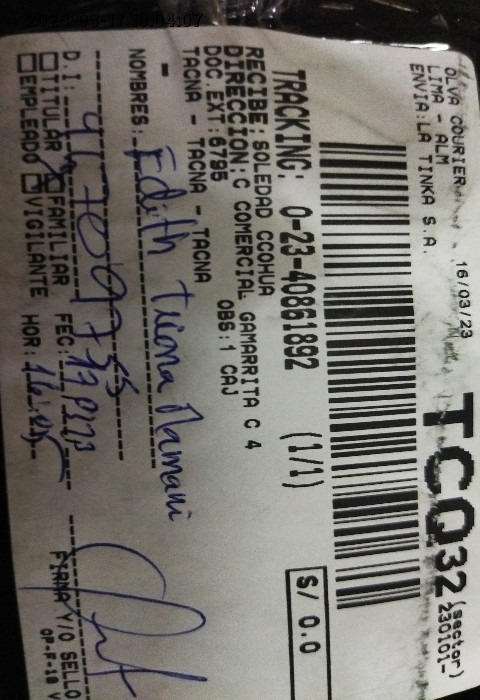 OLVA COURIER
16/03/23
LIMA - ALM
ENVIA:LA TINKA S.A.
TCQ32 (sector)
230101-
TRACKING: 0-23-40861892 (1/1)
S/ 0.0
RECIBE: SOLEDAD CCOHUA
DIRECCION: C COMERCIAL GAMARRITA C 4
DOC.EXT:6795 OBS:1 CAJ
TACNA - TACNA - TACNA
-
NOMBRES: Edith Ticona Mamani
D.I:
TITULAR FAMILIAR FEC:
EMPLEADO VIGILANTE HOR:
FIRMA Y/O SELLO
OP-F-18 V